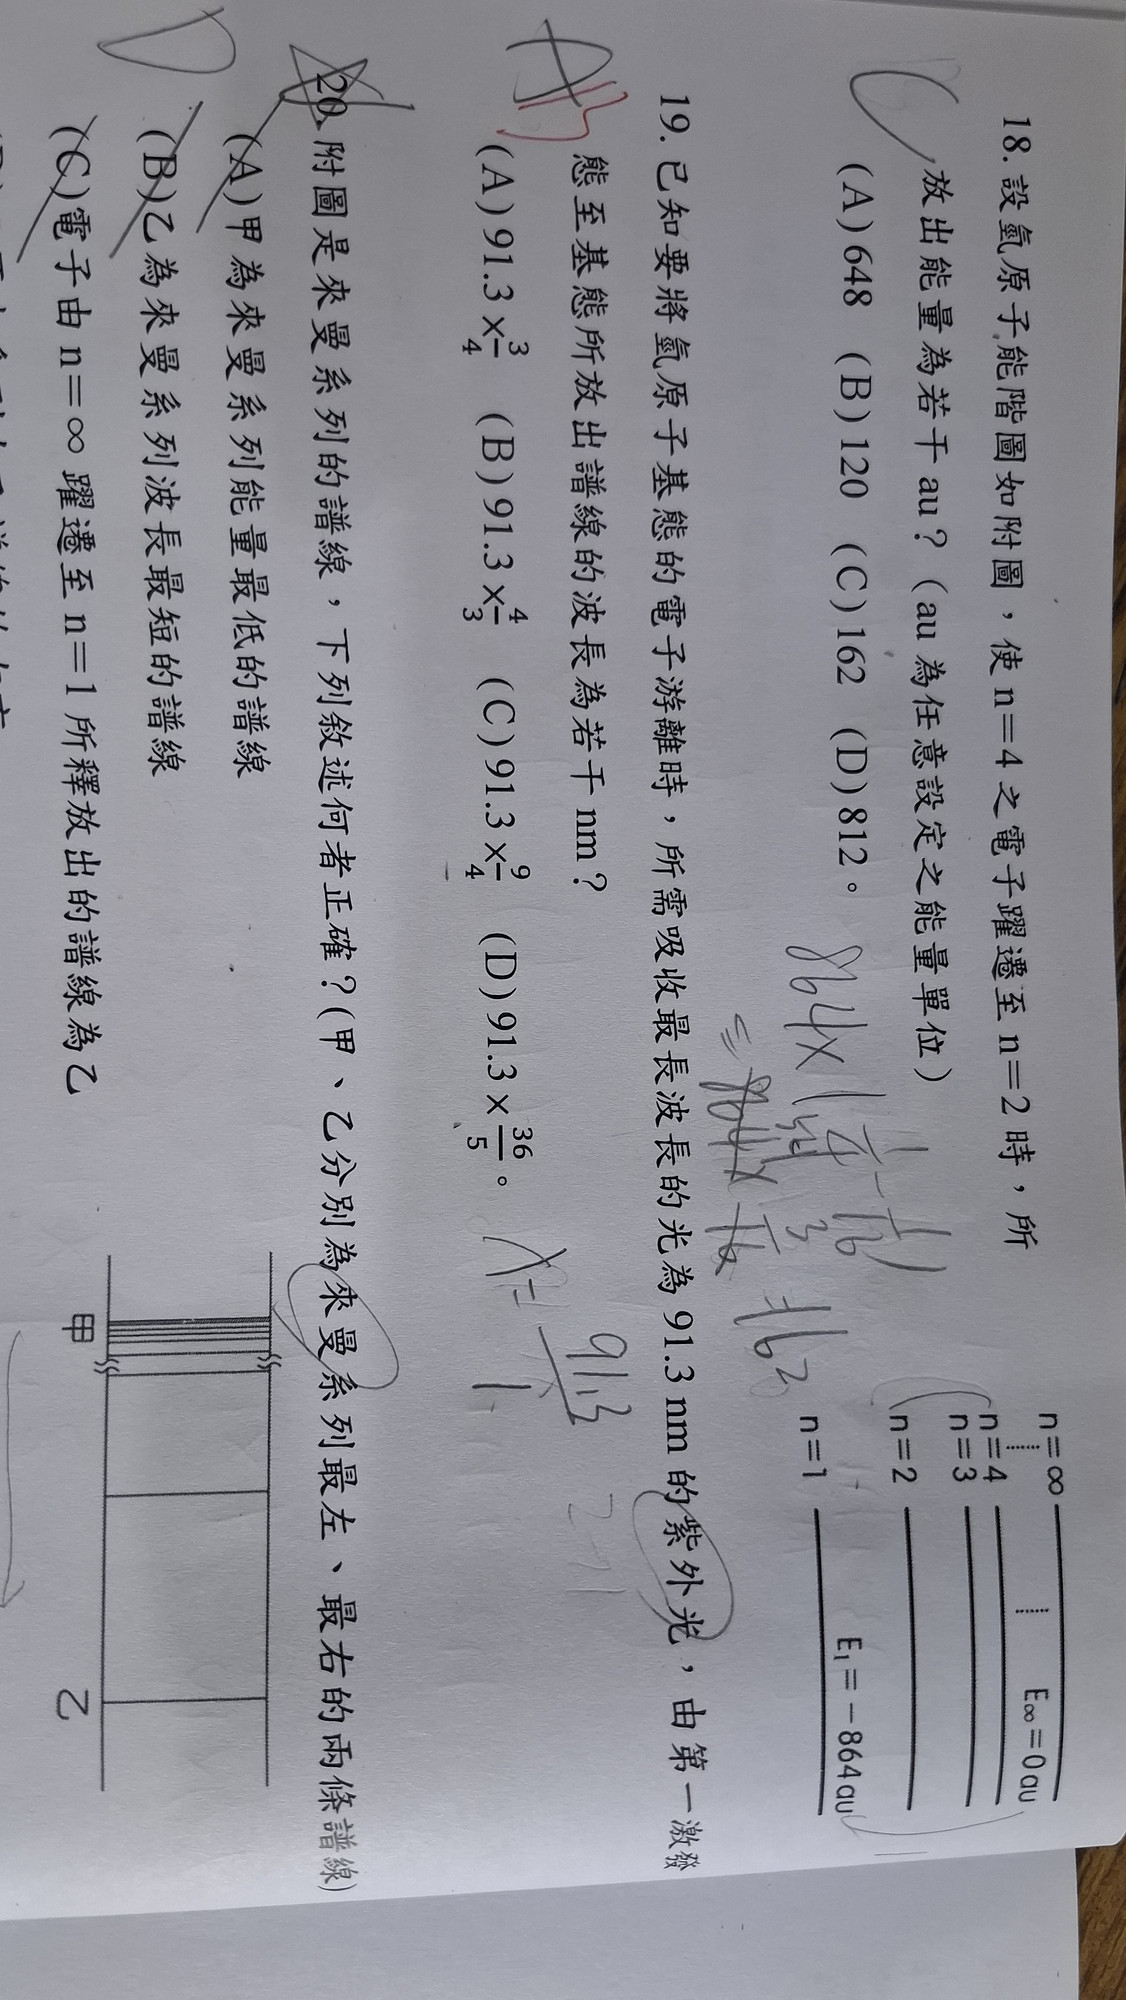 18. 設氫原子能階圖如附圖，使 n＝4 之電子躍遷至 n＝2 時，所
放出能量為若干 au？（au 為任意設定之能量單位）
(A) 648 (B) 120 (C) 162 (D) 812。
n＝∞ E∞＝0 au
n＝4
n＝3
n＝2
n＝1 E₁＝－864 au
C
864×(1/4－1/16)
162
19. 已知要將氫原子基態的電子游離時，所需吸收最長波長的光為 91.3 nm 的紫外光，由第一激發
態至基態所放出譜線的波長為若干 nm？
(A) 91.3 × 3/4 (B) 91.3 × 4/3 (C) 91.3 × 9/4 (D) 91.3 × 36/5。
A B
λ＝ 91.3
2→1
20. 附圖是來曼系列的譜線，下列敘述何者正確？(甲、乙分別為來曼系列最左、最右的兩條譜線)
(A) 甲為來曼系列能量最低的譜線
(B) 乙為來曼系列波長最短的譜線
(C) 電子由 n＝∞ 躍遷至 n＝1 所釋放出的譜線為乙
D
甲 乙